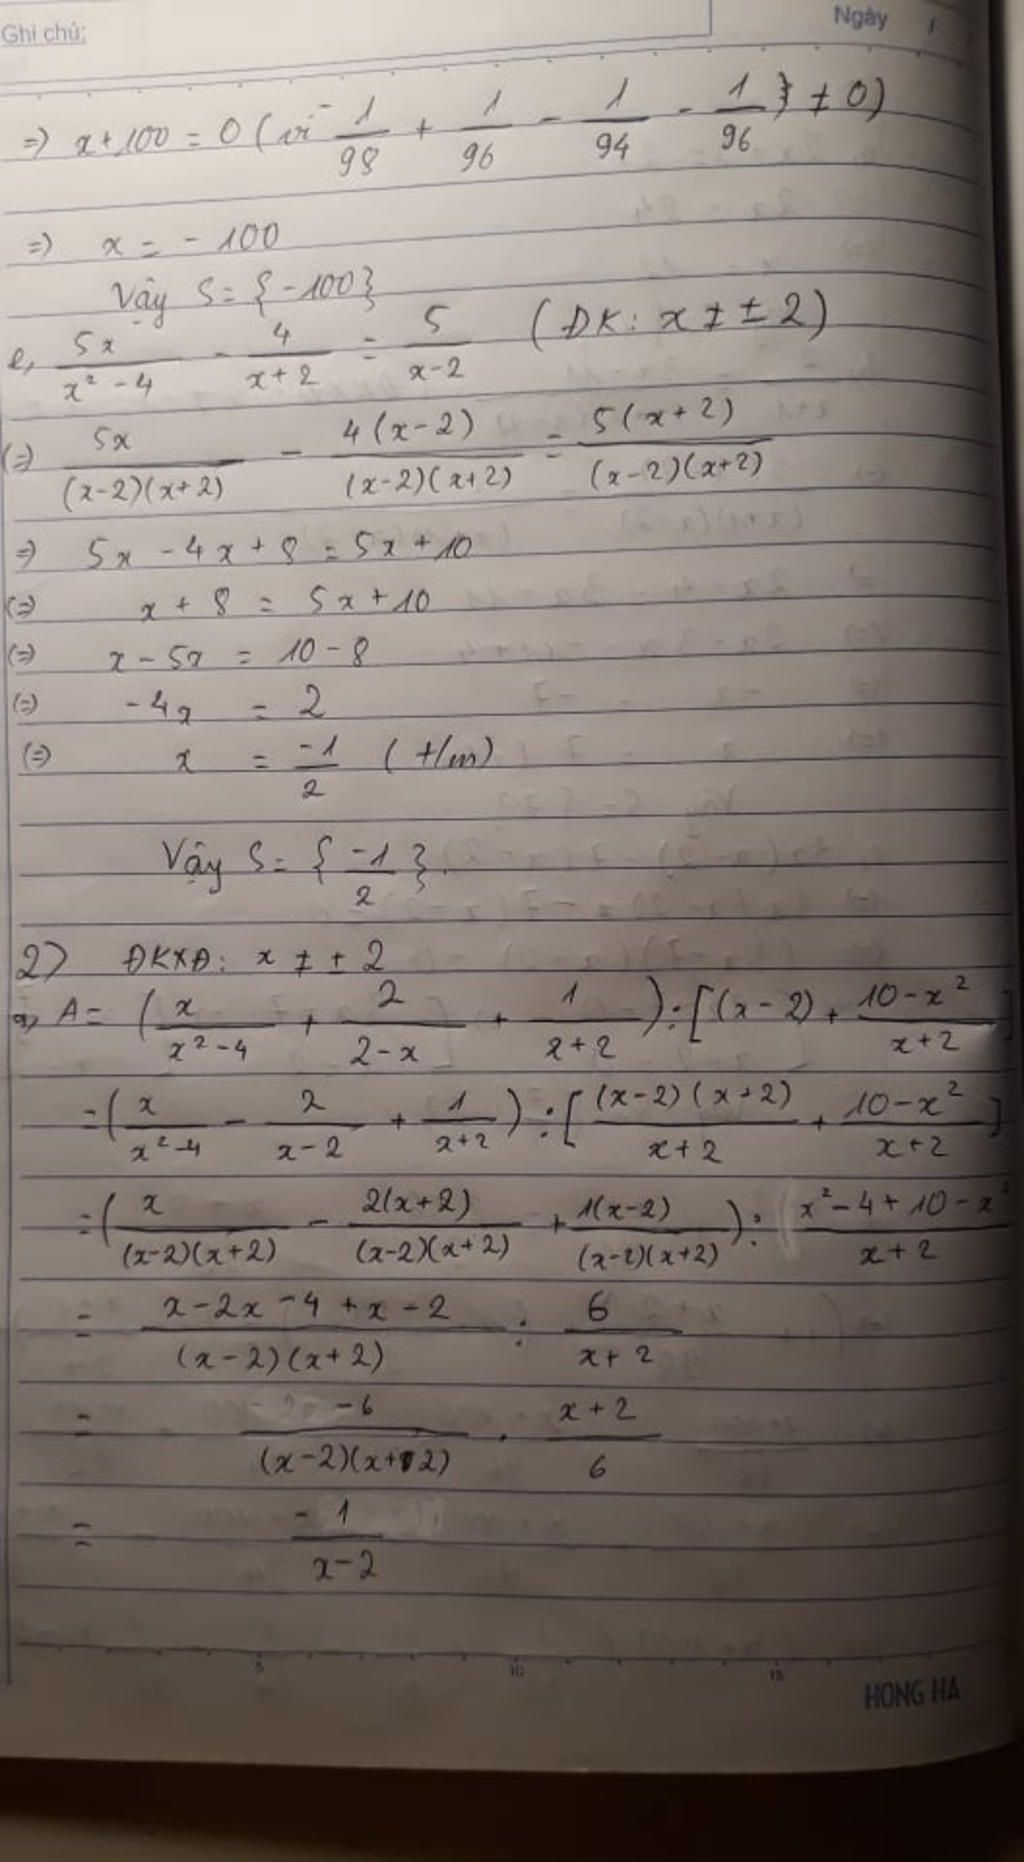 Ghi chú: Ngày / /
=> x+100 = 0 (vì 1/98 + 1/96 - 1/94 - 1/96 ≠ 0)
=> x = -100
Vậy S = {-100}
e, 5x/(x²-4) - 4/(x+2) = 5/(x-2) (ĐK: x ≠ ±2)
(=) 5x/((x-2)(x+2)) - 4(x-2)/((x-2)(x+2)) = 5(x+2)/((x-2)(x+2))
=> 5x - 4x + 8 = 5x + 10
(=) x + 8 = 5x + 10
(=) x - 5x = 10 - 8
(=) -4x = 2
(=) x = -1/2 (t/m)
Vậy S = {-1/2}.
2> ĐKXĐ: x ≠ ±2
a, A = (x/(x²-4) + 2/(2-x) + 1/(x+2)) : [(x-2) + (10-x²)/(x+2)]
= (x/(x²-4) - 2/(x-2) + 1/(x+2)) : [(x-2)(x+2)/(x+2) + (10-x²)/(x+2)]
= (x/((x-2)(x+2)) - 2(x+2)/((x-2)(x+2)) + 1(x-2)/((x-2)(x+2))) : (x²-4+10-x²)/(x+2)
= (x-2x-4+x-2)/((x-2)(x+2)) : 6/(x+2)
= -6/((x-2)(x+2)) . (x+2)/6
= -1/(x-2)
5 10 15
HONG HA